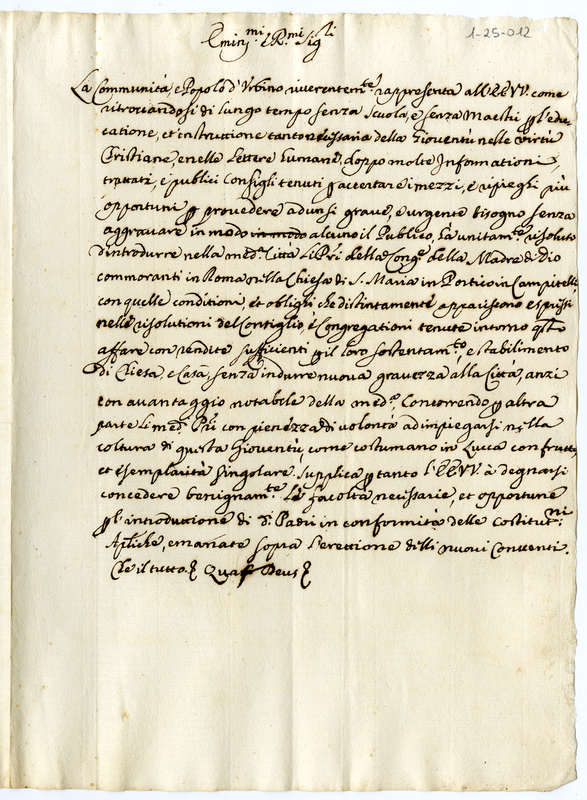 1-25-012
Emin.mi e R.mi Sig.li
La Communità, e Popolo d'Urbino riverentem.te rappresenta all'EEVV. come
ritrovandosi di lungo tempo senza Scuola, e senza Maestri p l'edu
catione, et instruttione tanto necessaria della Gioventù nelle virtù
Christiane, e nelle Lettere humane, doppo molte Informationi,
trattati, e publici Consigli tenuti p accertare i mezzi, e ripieghi più
opportuni p provedere ad un sì grave, e urgente bisogno senza
aggravare in modo in modo alcuno il Publico, hà unitam.te risoluto
d'introdurre nella med.a Città li PPri della Cong.e della Madre di Dio
commoranti in Roma nella Chiesa di S. Maria in Portico in Campitelli
con quelle conditioni, et oblighi che distintamente appariscono espressi
nelle risolutioni del Consiglio, e Congregationi tenute intorno q.sto
affare con rendite sufficienti p il loro sostentam.to, e stabilimento
di Chiesa, e Casa, senza indurre nuova gravezza alla Città, anzi
con avantaggio notabile della med.a Concorrendo p altra
parte li med.i PPri con pienezza di volontà ad impiegarsi nella
coltura di questa Gioventù, come costumano in Lucca con frutto,
et esemplarità singolare. Supplica p tanto l'EEVV. à degnarsi
concedere benignam.te le facoltà necessarie, et opportune
p l'introduttione di d.i Padri in conformità delle Costitut.ni
Apliche, emanate sopra l'erettione delli nuovi Conventi.
Che il tutto. Quas Deus